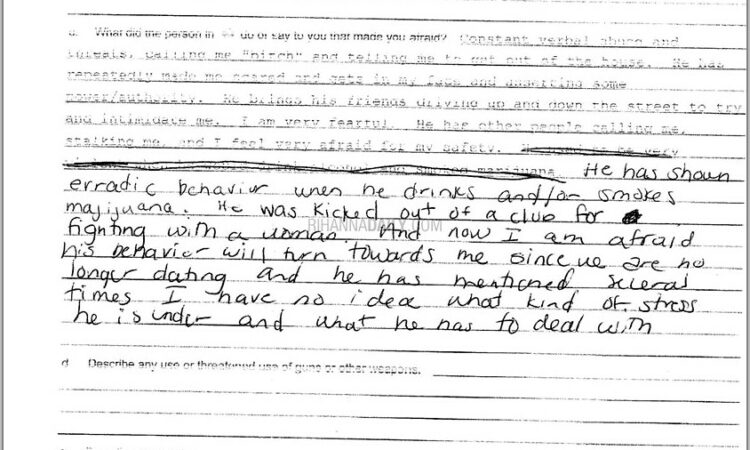 c. What did the person in do or say to you that made you afraid? Constant verbal abuse and
threats, calling me "bitch" and telling me to get out of the house. He has
repeatedly made me scared and gets in my face and asserting some
power/authority. He brings his friends driving up and down the street to try
and intimidate me. I am very fearful. He has other people calling me,
stalking me, and I feel very afraid for my safety.
He has shown
erradic behavior when he drinks and/or smokes
majijuana. He was kicked out of a club for
RIHANNADAILY.COM
fighting with a woman. And now I am afraid
his behavior will turn towards me since we are no
longer dating and he has mentioned several
times I have no idea what kind of stress
he is under and what he has to deal with
d. Describe any use or threatened use of guns or other weapons.